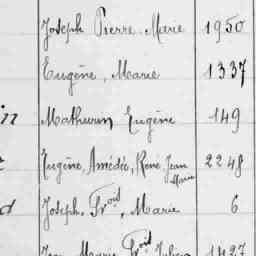 Joseph Pierre Marie 1950
Eugène, Marie 1337
in Mathurin Eugène 149
Eugène, Amédée, René, Jean Marie 2248
d Joseph, Fr^ois, Marie 6
Jean Marie Fr^ois Julien 1427